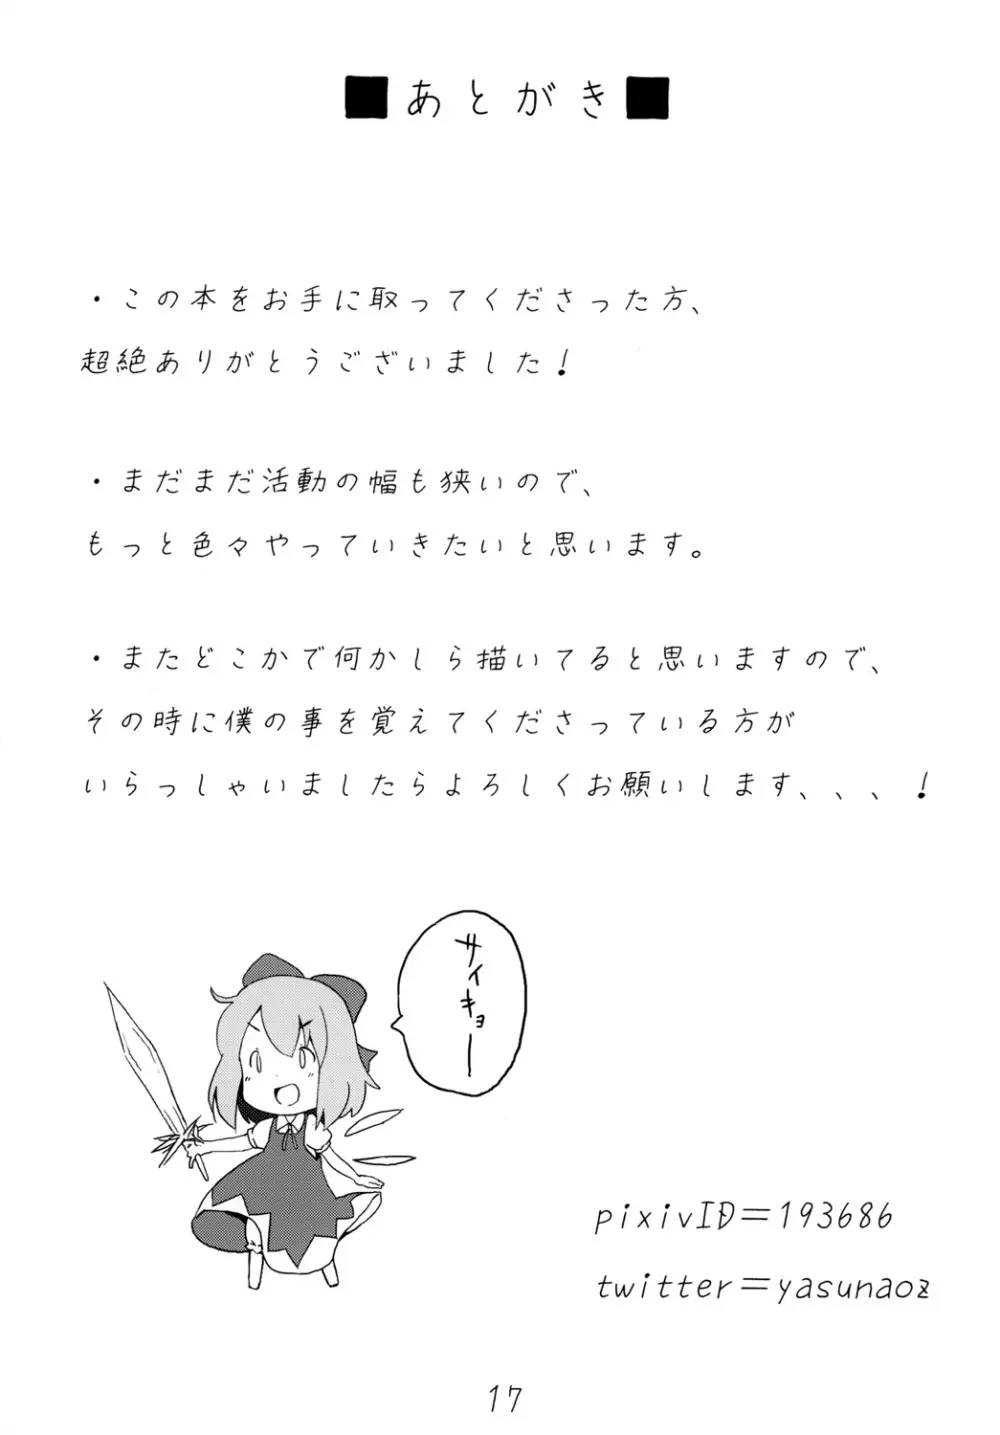 ■あとがき■
・この本をお手に取ってくださった方、
超絶ありがとうございました！
・まだまだ活動の幅も狭いので、
もっと色々やっていきたいと思います。
・またどこかで何かしら描いてると思いますので、
その時に僕の事を覚えてくださっている方が
いらっしゃいましたらよろしくお願いします、、、！
サイキョー
pixivID＝193686
twitter＝yasunaoz
17